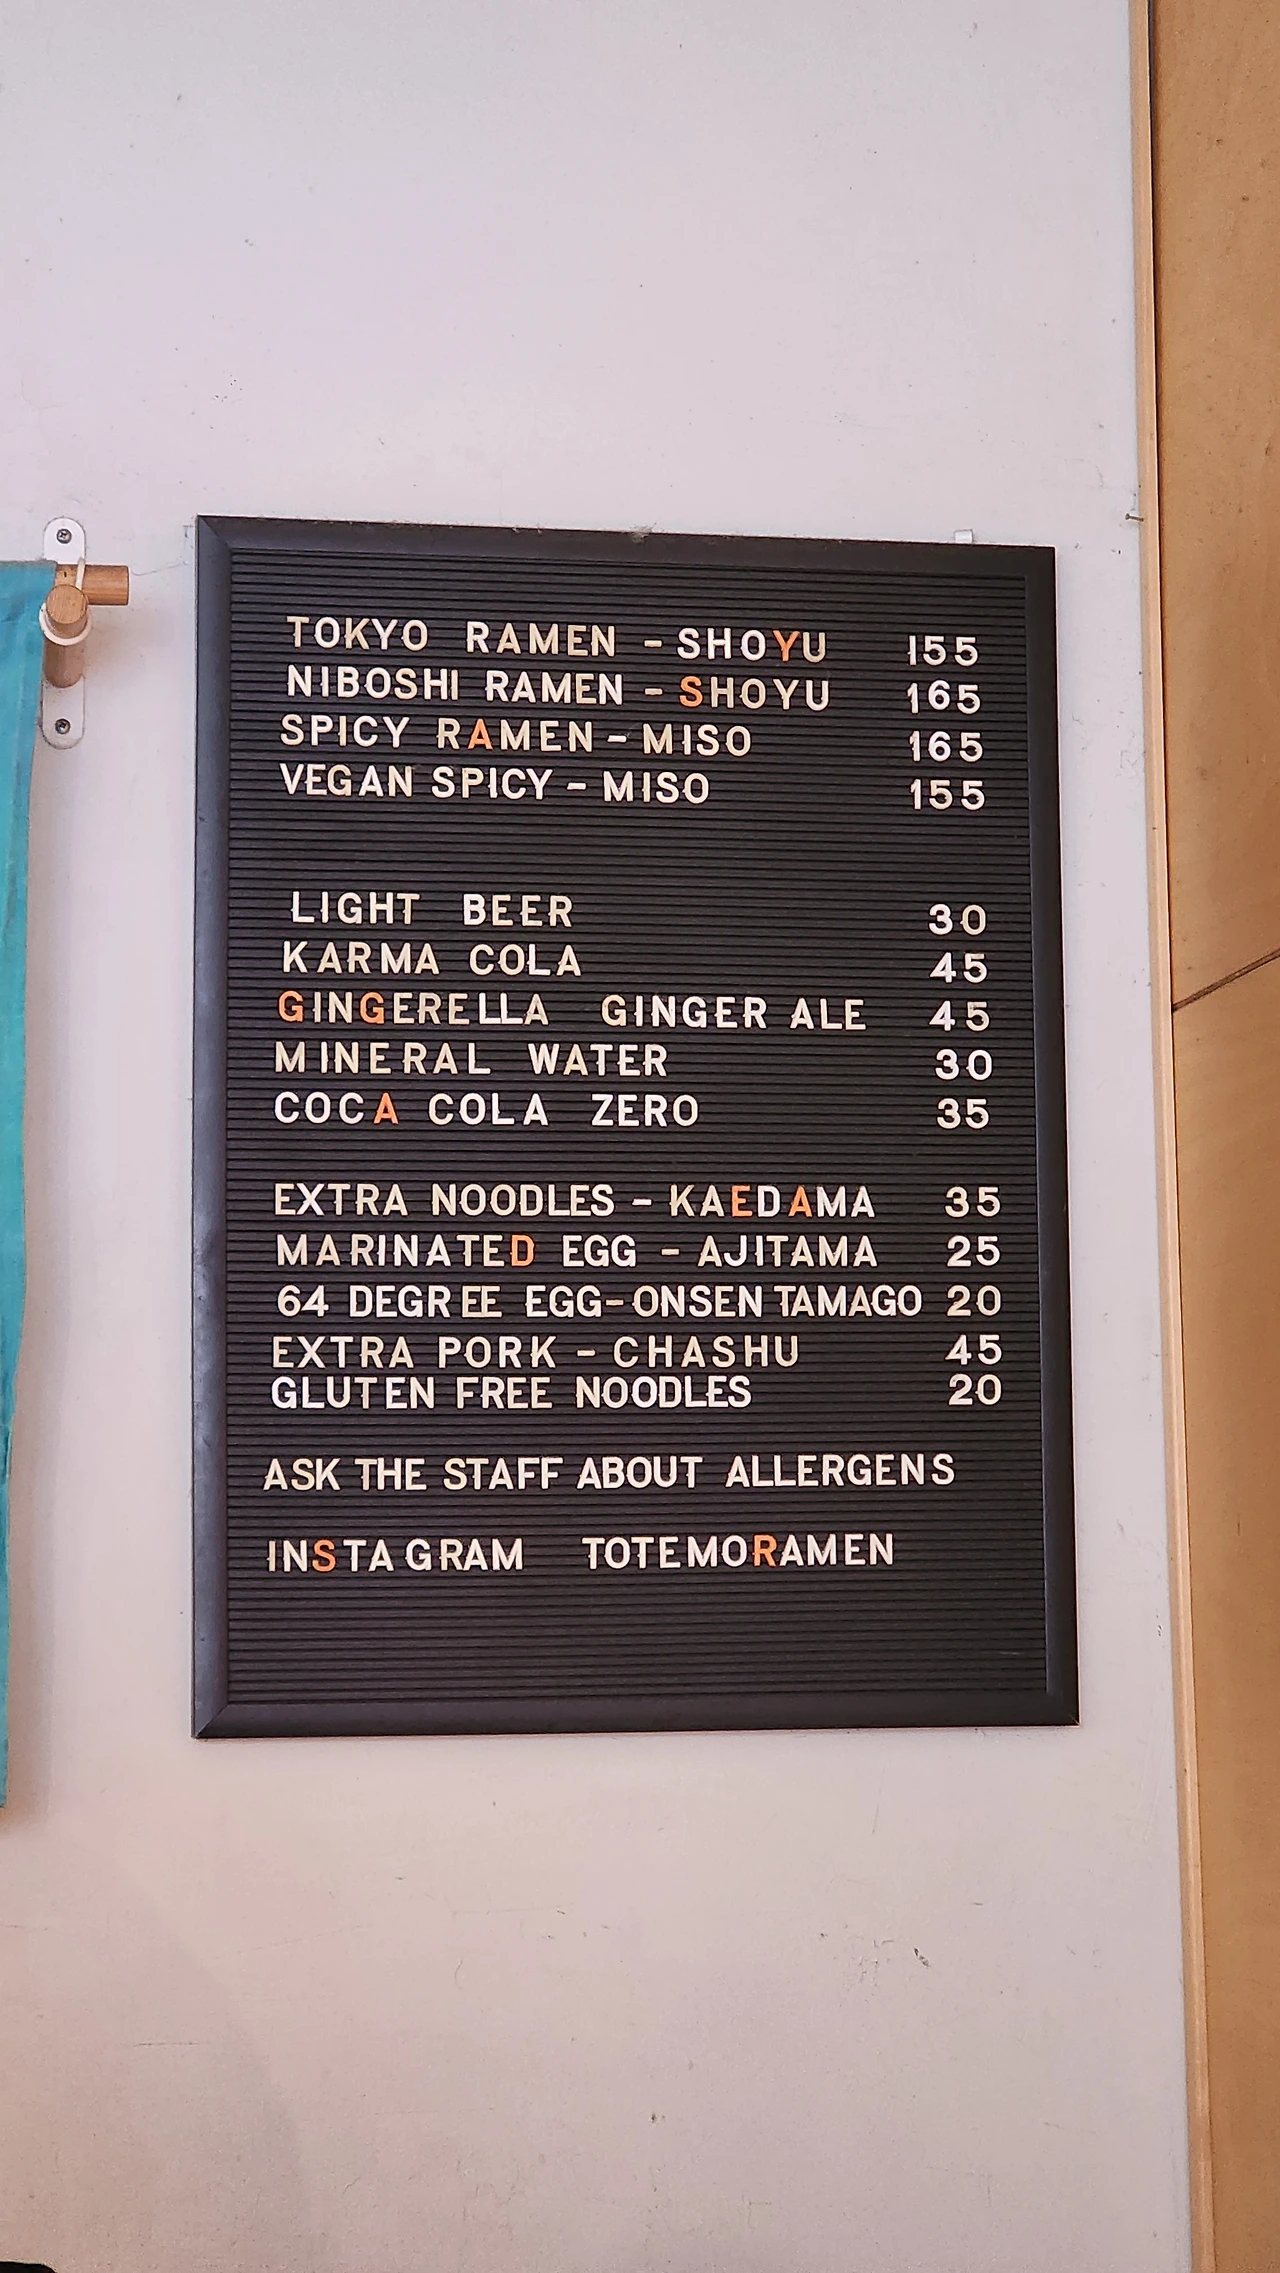 TOKYO RAMEN - SHOYU 155
NIBOSHI RAMEN - SHOYU 165
SPICY RAMEN - MISO 165
VEGAN SPICY - MISO 155
LIGHT BEER 30
KARMA COLA 45
GINGERELLA GINGER ALE 45
MINERAL WATER 30
COCA COLA ZERO 35
EXTRA NOODLES - KAEDAMA 35
MARINATED EGG - AJITAMA 25
64 DEGREE EGG - ONSEN TAMAGO 20
EXTRA PORK - CHASHU 45
GLUTEN FREE NOODLES 20
ASK THE STAFF ABOUT ALLERGENS
INSTAGRAM TOTEMORAMEN